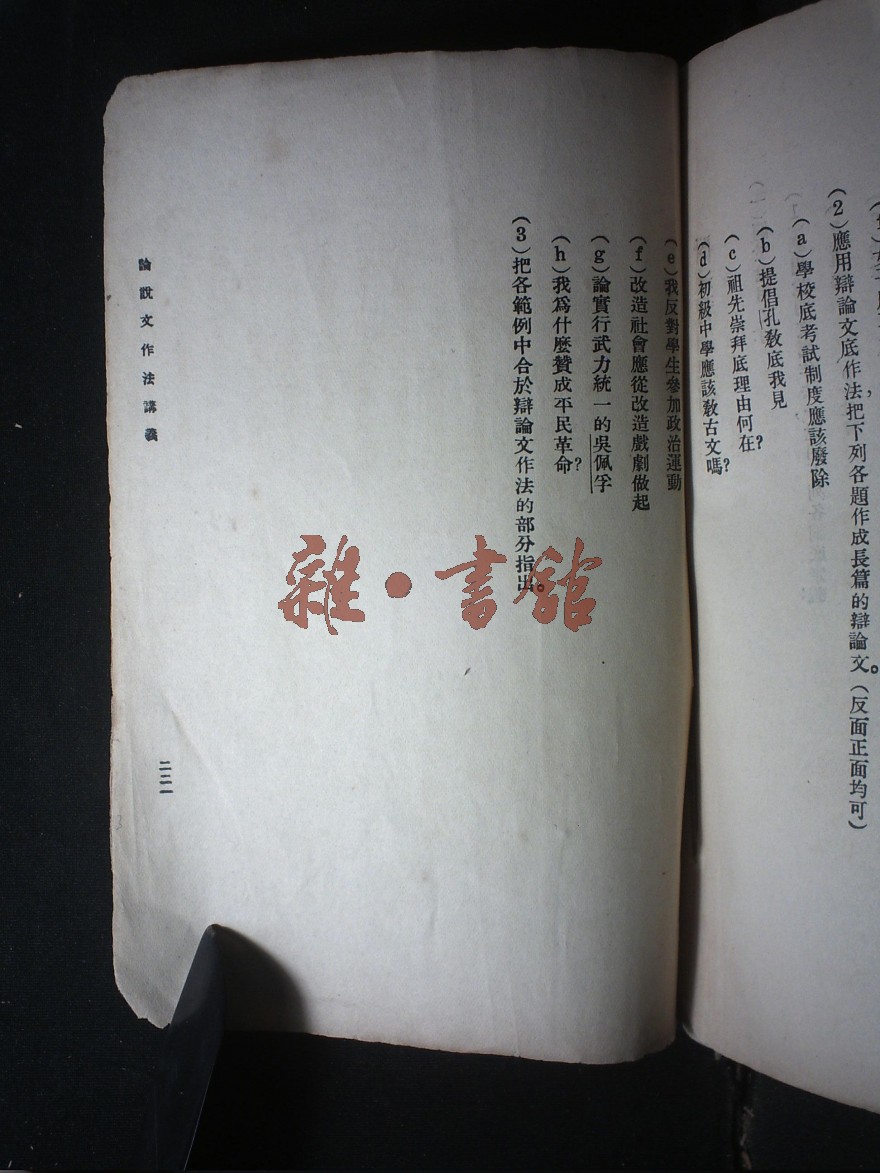 (2)應用辯論文底作法,把下列各題作成長篇的辯論文。(反面正面均可)
(a)學校底考試制度應該廢除
(b)提倡孔敎底我見
(c)祖先崇拜底理由何在?
(d)初級中學應該敎古文嗎?
(e)我反對學生參加政治運動
(f)改造社會應從改造戲劇做起
(g)論實行武力統一的吳佩孚
(h)我爲什麽贊成平民革命?
(3)把各範例中合於辯論文作法的部分指出。
論說文作法講義
二二一
雜•書館